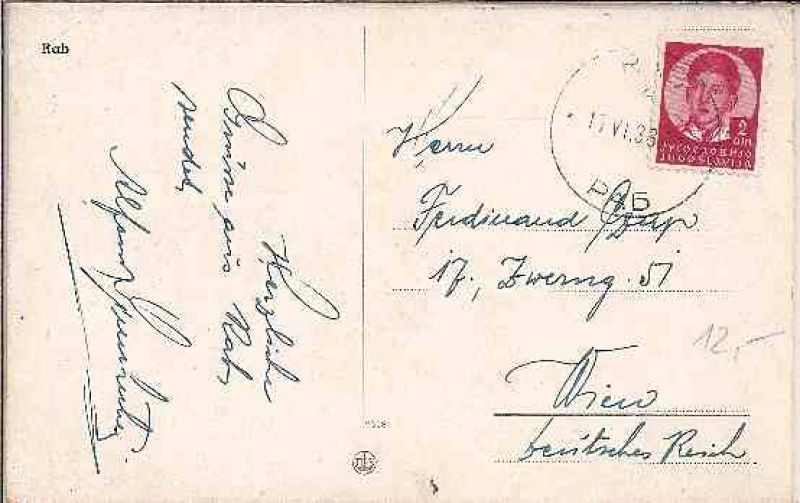 Rab
Herzliche
Grüsse aus Rab,
sendet
Alfons
17 VI. 38
РАБ
2
DIN
ЈУГОСЛАВИЈА
JUGOSLAVIJA
Herrn
Ferdinand
17., Zwerng. 51
Wien
Deutsches Reich
12,-